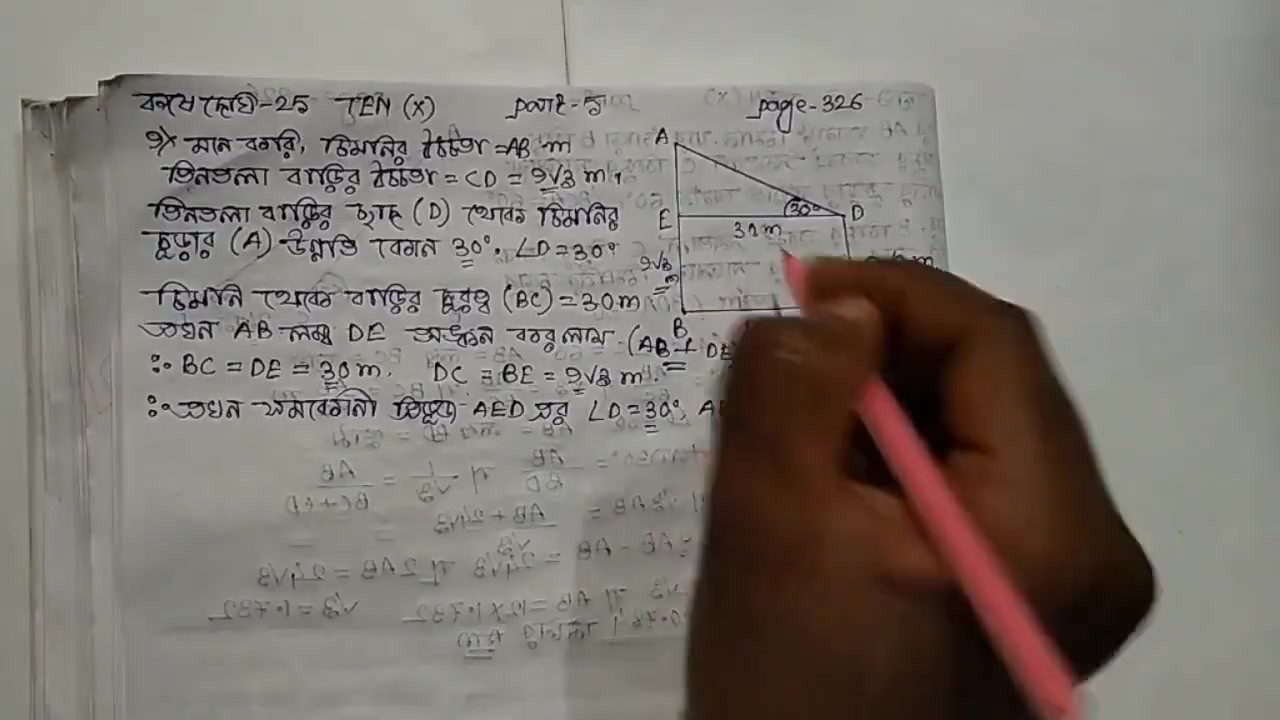 কষে দেখি-25 TEN (X) part-5 page-326
9) মনে করি, চিমনির উচ্চতা = AB m
তিনতলা বাড়ির উচ্চতা = CD = 9√3 m,
তিনতলা বাড়ির ছাদ (D) থেকে চিমনির
চূড়ার (A) উন্নতি কোন 30°. ∠D = 30°
চিমনি থেকে বাড়ির দূরত্ব (BC) = 30 m
তখন AB লম্ব DE অঙ্কন করলাম (AB ⊥ DE
∴ BC = DE = 30 m. DC = BE = 9√3 m.
∴ তখন সমকোণী ত্রিভুজ AED এর ∠D = 30°,
A
E
30°
D
30 m
9√3
m
B